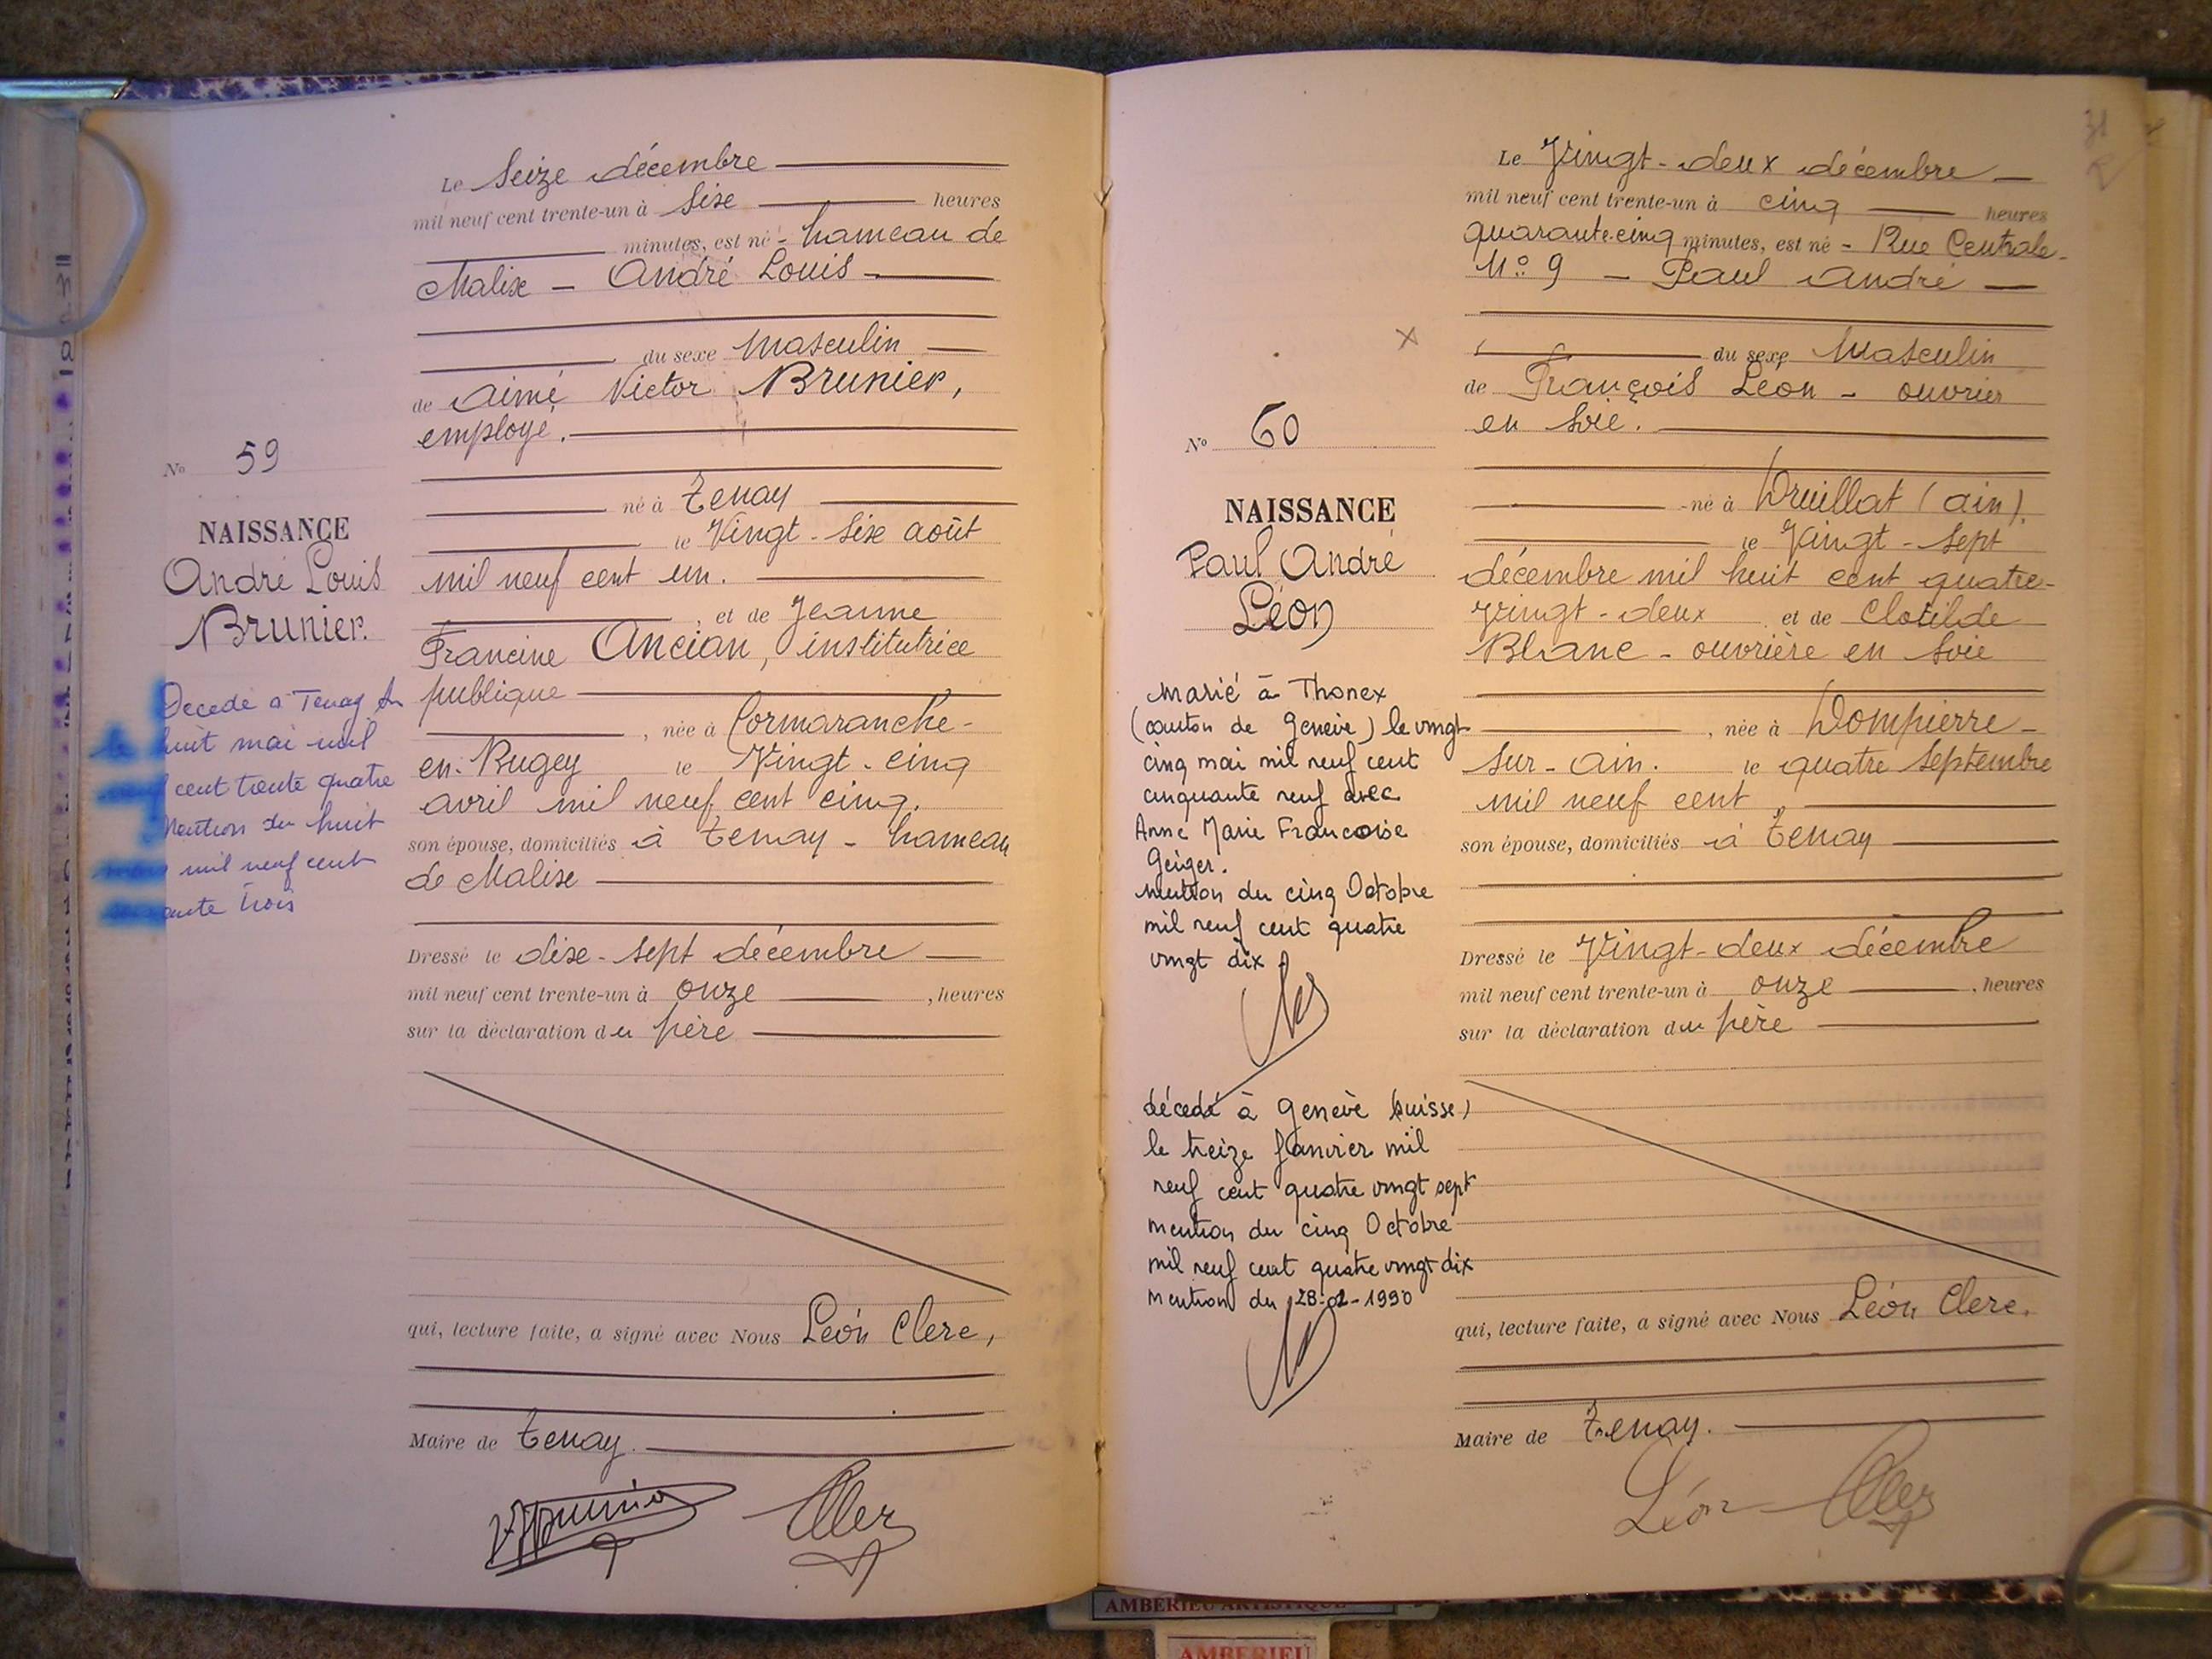 Le Seize décembre
mil neuf cent trente-un à Six heures
minutes, est né - hameau de
Malix - André Louis -
du sexe Masculin
de Aimé Victor Brunier,
employé.
né à Tenay
le Vingt-six août
mil neuf cent un.
, et de Jeanne
Francine Ancian, institutrice
publique
, née à Cormaranche-
en-Bugey le Vingt-cinq
avril mil neuf cent cinq.
son épouse, domiciliés à Tenay - hameau
de Malix
Dressé le dix-sept décembre
mil neuf cent trente-un à onze , heures
sur la déclaration du père
qui, lecture faite, a signé avec Nous Léon Clerc,
Maire de Tenay.
No 59
NAISSANCE
André Louis
Brunier.
Décédé à Tenay
le huit mai mil
neuf cent trente quatre
Mention du huit
mil neuf cent
ante trois
31
Le Vingt-deux décembre
mil neuf cent trente-un à cinq heures
quarante-cinq minutes, est né - Rue Centrale-
No 9 - Paul André -
du sexe Masculin
de François Léon - ouvrier
en soie.
né à Druillat (Ain).
le Vingt-sept
décembre mil huit cent quatre-
vingt-deux et de Clotilde
Blanc - ouvrière en soie
, née à Dompierre-
sur-Ain. le quatre Septembre
mil neuf cent ,
son épouse, domiciliés à Tenay
Dressé le Vingt-deux décembre
mil neuf cent trente-un à onze , heures
sur la déclaration du père
qui, lecture faite, a signé avec Nous Léon Clerc.
Maire de Tenay.
Léon
No 60
NAISSANCE
Paul André
Léon
Marié à Thonex
(canton de Genève) le vingt
cinq mai mil neuf cent
cinquante neuf avec
Anne Marie Francoise
Geiger.
mention du cinq Octobre
mil neuf cent quatre
vingt dix
décédé à Genève (suisse)
le treize Janvier mil
neuf cent quatre vingt sept
mention du cinq Octobre
mil neuf cent quatre vingt dix
mention du 28-02-1990
AMBERIEU ARTISTIQUE
AMBERIEU